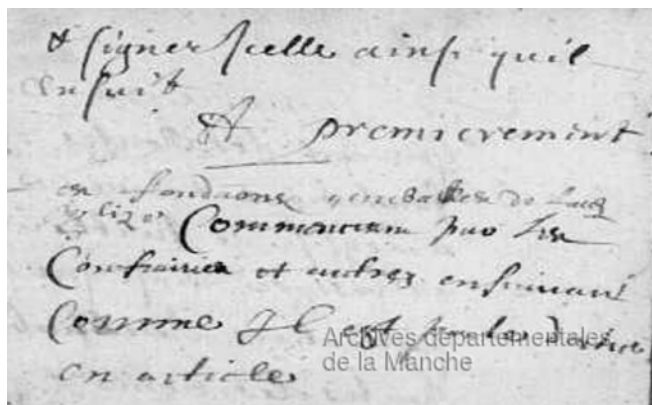 & signer Icelle ainsi quil
ensuit
Et premierement
es fondaons generalles de lad
eglize Commencem par les
Confrairies et autres ensuivant
Comme Il est
en article
Archives départementales
de la Manche